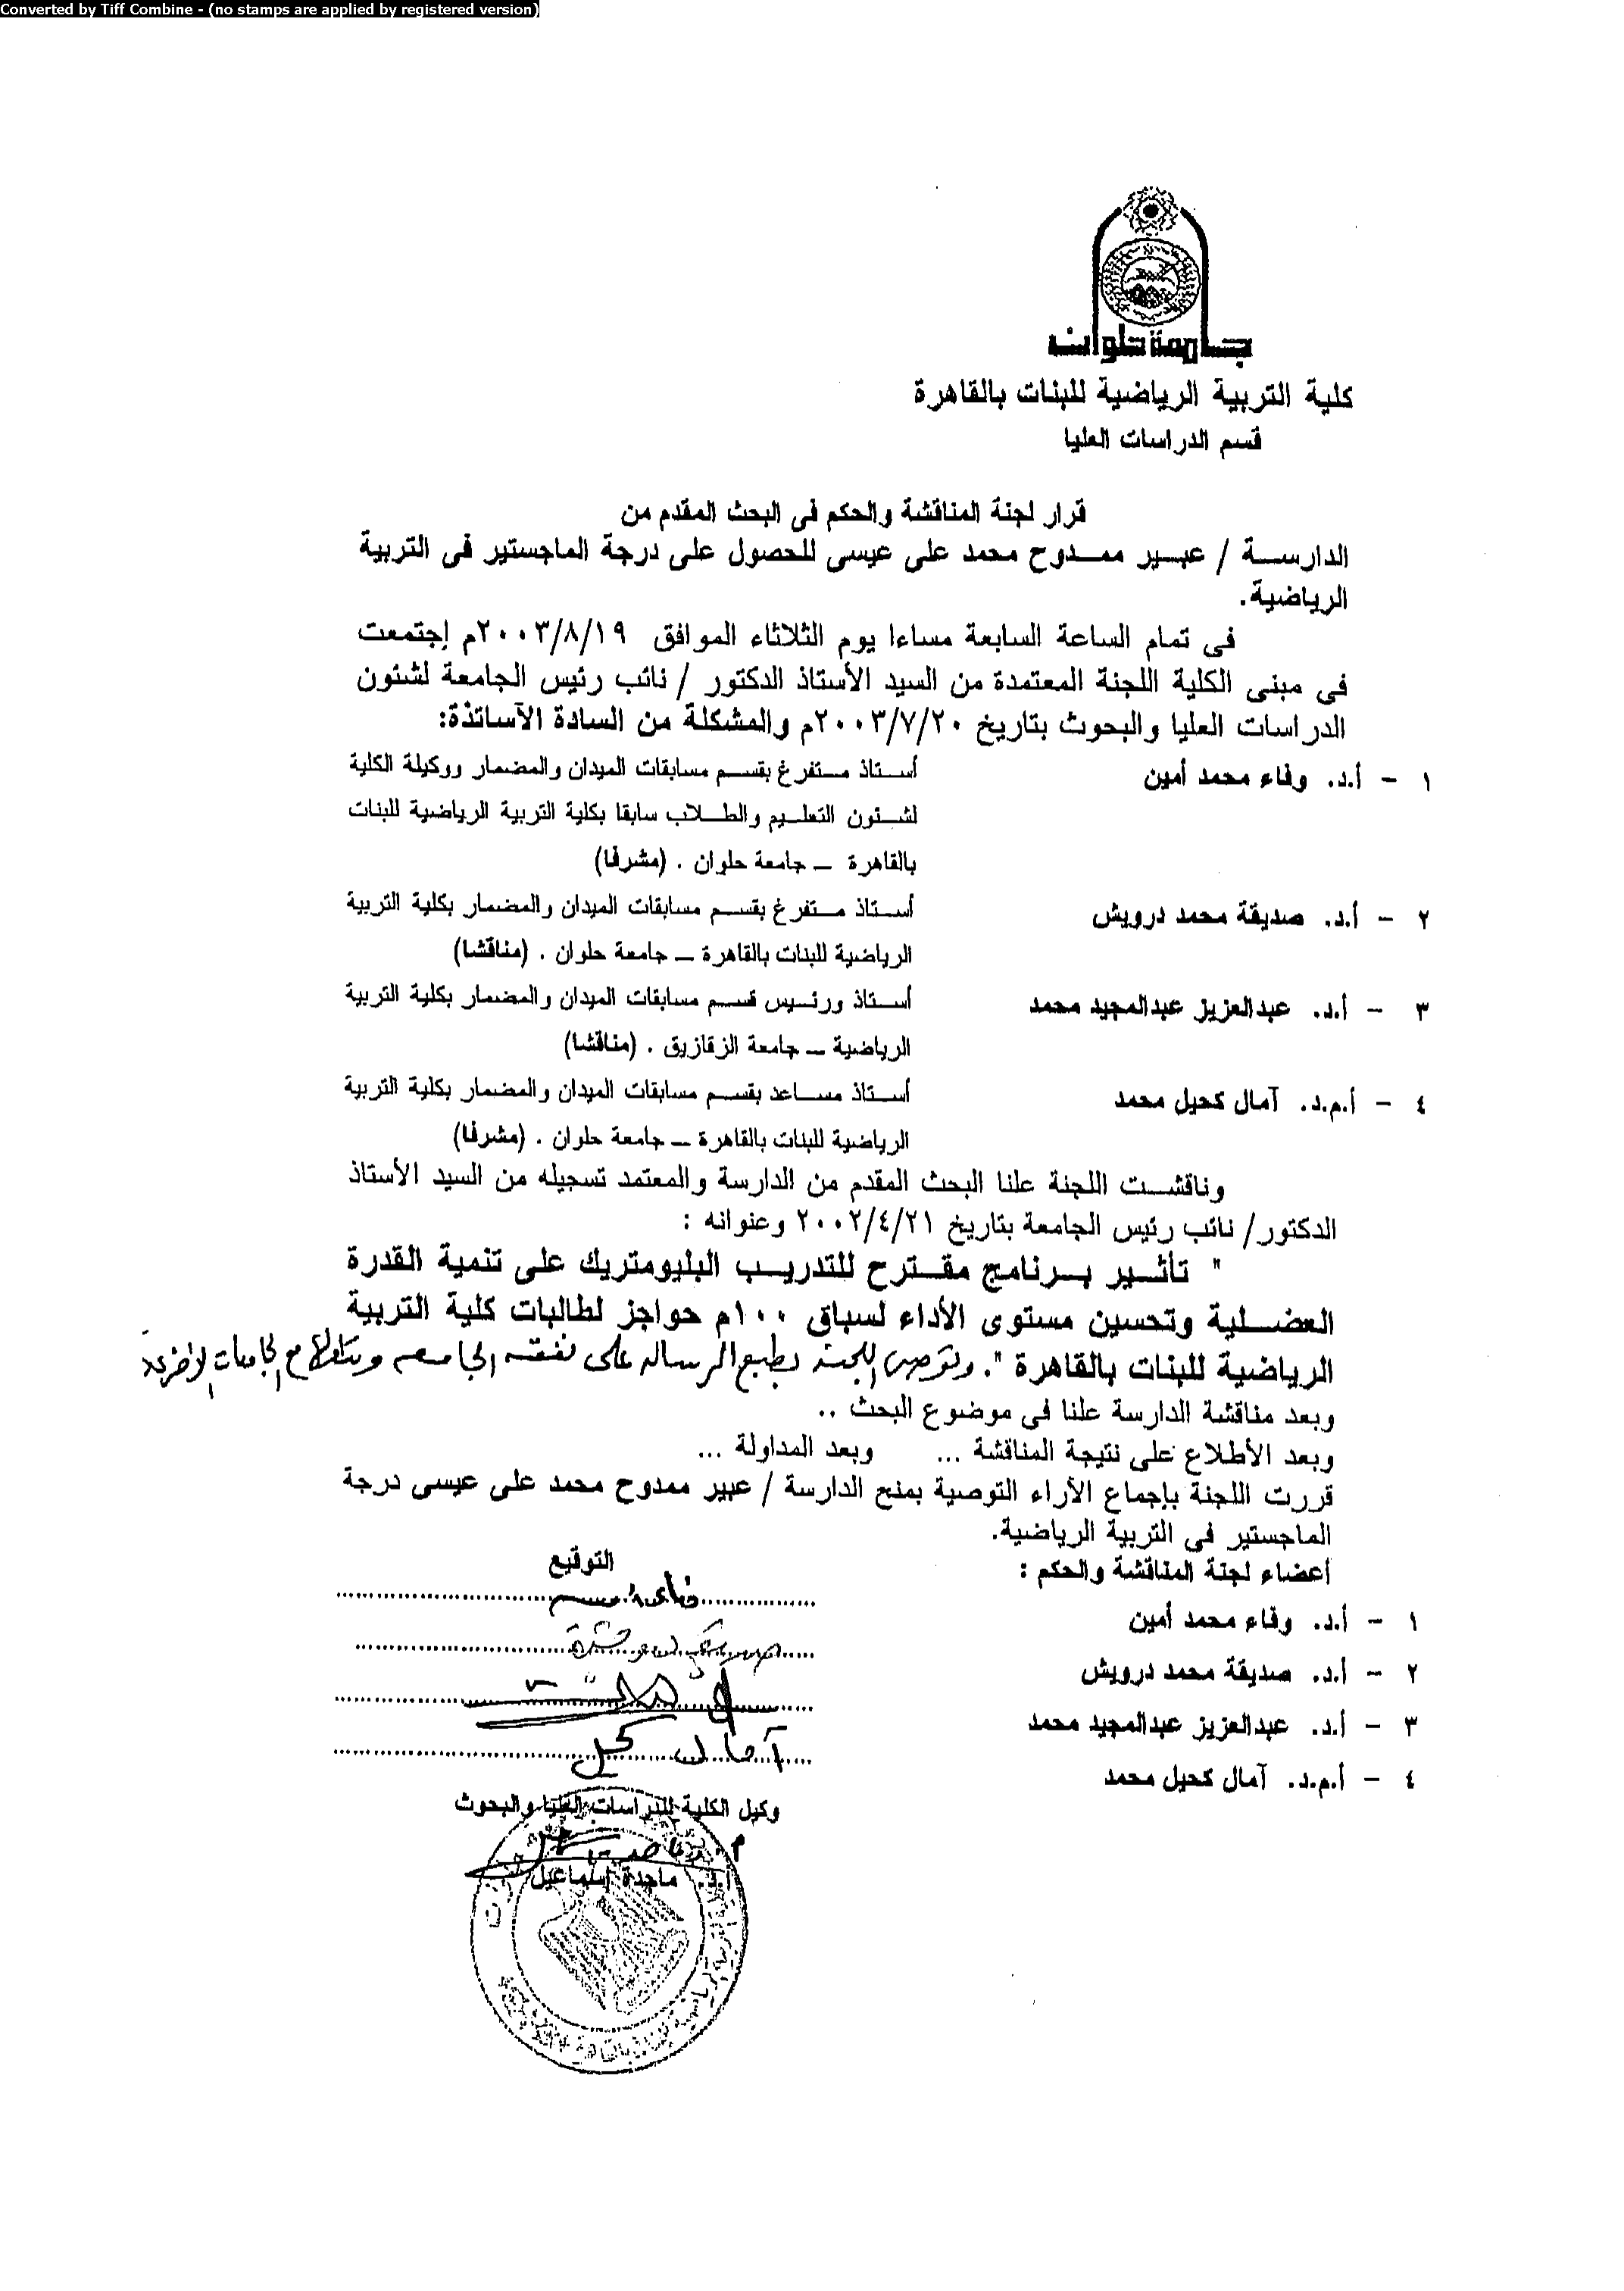 Converted by Tiff Combine - (no stamps are applied by registered version)
جامعة حلوان
كلية التربية الرياضية للبنات بالقاهرة
قسم الدراسات العليا
قرار لجنة المناقشة والحكم فى البحث المقدم من
الدارسة / عبير ممدوح محمد على عيسى للحصول على درجة الماجستير فى التربية
الرياضية.
فى تمام الساعة السابعة مساءا يوم الثلاثاء الموافق ٢٠٠٣/٨/١٩م إجتمعت
فى مبنى الكلية اللجنة المعتمدة من السيد الأستاذ الدكتور / نائب رئيس الجامعة لشئون
الدراسات العليا والبحوث بتاريخ ٢٠٠٣/٧/٢٠م والمشكلة من السادة الآساتذة:
١ - أ.د. وفاء محمد أمين أستاذ متفرغ بقسم مسابقات الميدان والمضمار ووكيلة الكلية
لشئون التعليم والطلاب سابقا بكلية التربية الرياضية للبنات
بالقاهرة – جامعة حلوان . (مشرفا)
٢ - أ.د. صديقة محمد درويش أستاذ متفرغ بقسم مسابقات الميدان والمضمار بكلية التربية
الرياضية للبنات بالقاهرة – جامعة حلوان . (مناقشا)
٣ - أ.د. عبدالعزيز عبدالمجيد محمد أستاذ ورئيس قسم مسابقات الميدان والمضمار بكلية التربية
الرياضية – جامعة الزقازيق . (مناقشا)
٤ - أ.م.د. آمال كحيل محمد أستاذ مساعد بقسم مسابقات الميدان والمضمار بكلية التربية
الرياضية للبنات بالقاهرة – جامعة حلوان . (مشرفا)
وناقشت اللجنة علنا البحث المقدم من الدارسة والمعتمد تسجيله من السيد الأستاذ
الدكتور/ نائب رئيس الجامعة بتاريخ ٢٠٠٢/٤/٢١ وعنوانه :
" تأثير برنامج مقترح للتدريب البليومتريك على تنمية القدرة
العضلية وتحسين مستوى الأداء لسباق ١٠٠م حواجز لطالبات كلية التربية
الرياضية للبنات بالقاهرة ". وتوصى اللجنة بطبع الرساله على نفقة الجامعه وتبادلها مع الجامعات الأخرى
وبعد مناقشة الدارسة علنا فى موضوع البحث ..
وبعد الأطلاع على نتيجة المناقشة ... وبعد المداولة ...
قررت اللجنة بإجماع الأراء التوصية بمنح الدارسة / عبير ممدوح محمد على عيسى درجة
الماجستير فى التربية الرياضية.
أعضاء لجنة المناقشة والحكم : التوقيع
١ - أ.د. وفاء محمد أمين
٢ - أ.د. صديقة محمد درويش
٣ - أ.د. عبدالعزيز عبدالمجيد محمد
٤ - أ.م.د. آمال كحيل محمد آمال كحيل
وكيل الكلية للدراسات العليا والبحوث
أ.د. ماجدة إسماعيل